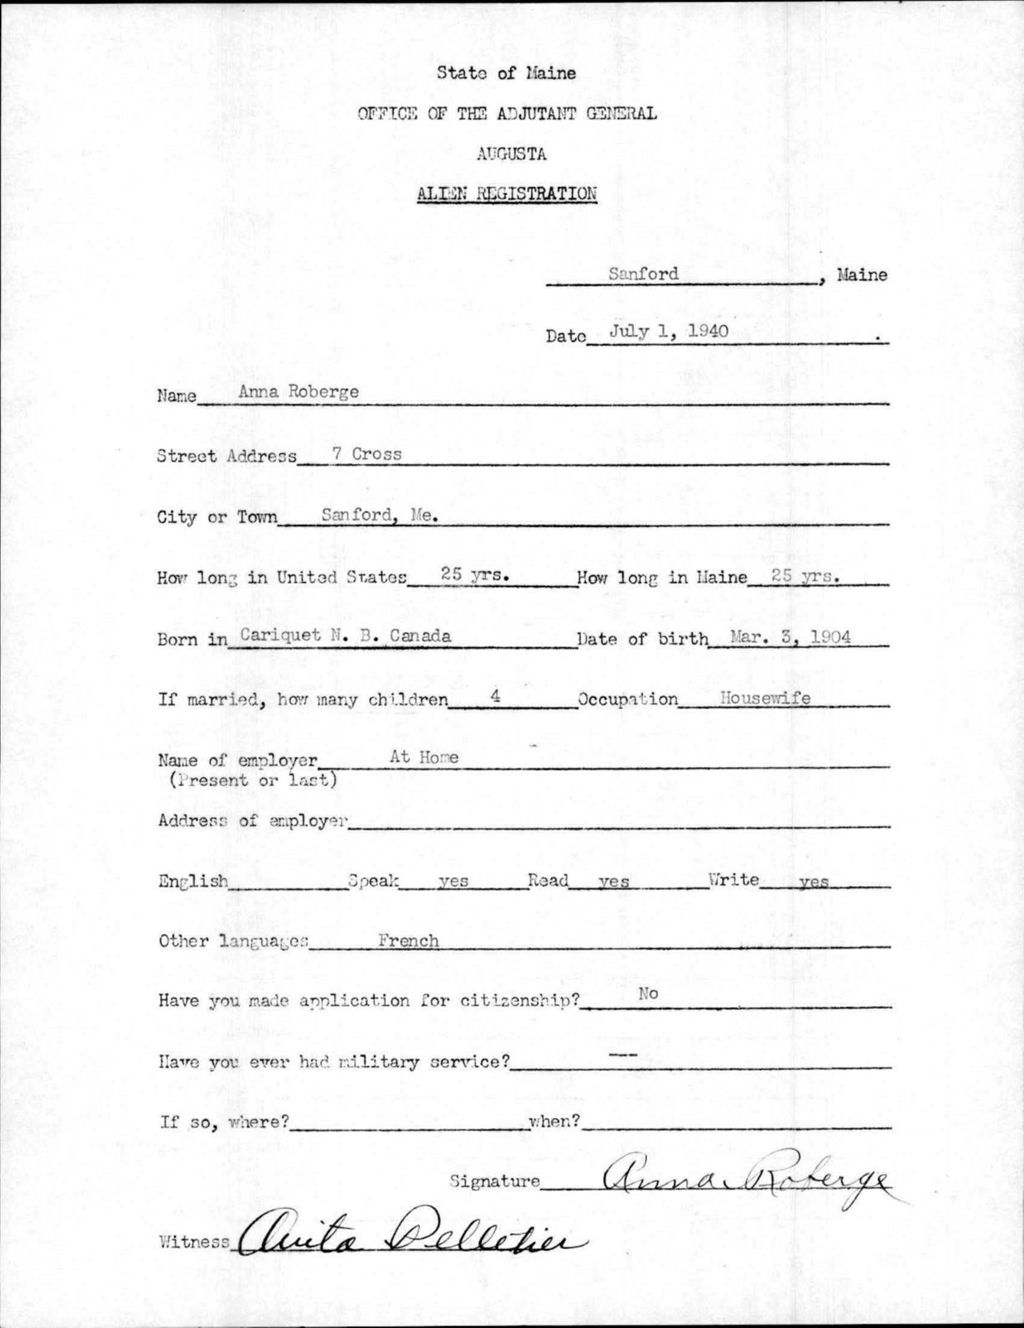 State of Maine
OFFICE OF THE ADJUTANT GENERAL
AUGUSTA
ALIEN REGISTRATION
Sanford, Maine
Date July 1, 1940.
Name Anna Roberge
Street Address 7 Cross
City or Town Sanford, Me.
How long in United States 25 yrs. How long in Maine 25 yrs.
Born in Cariquet N. B. Canada Date of birth Mar. 3, 1904
If married, how many children 4 Occupation Housewife
Name of employer At Home
(Present or last)
Address of employer
English Speak yes Read yes Write yes
Other languages French
Have you made application for citizenship? No
Have you ever had military service? ---
If so, where? when?
Signature Anna Roberge
Witness Anita Pelletier